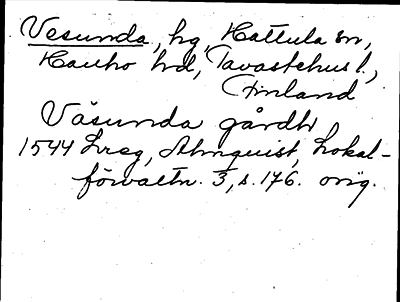 Vesunda, hg, Hattula sn,
Hauho hd, Tavastehus l.,
Finland
Väsunda gårdh
1544 Lreg, Almquist, Lokal-
förvaltn. 3, s. 176. orig.